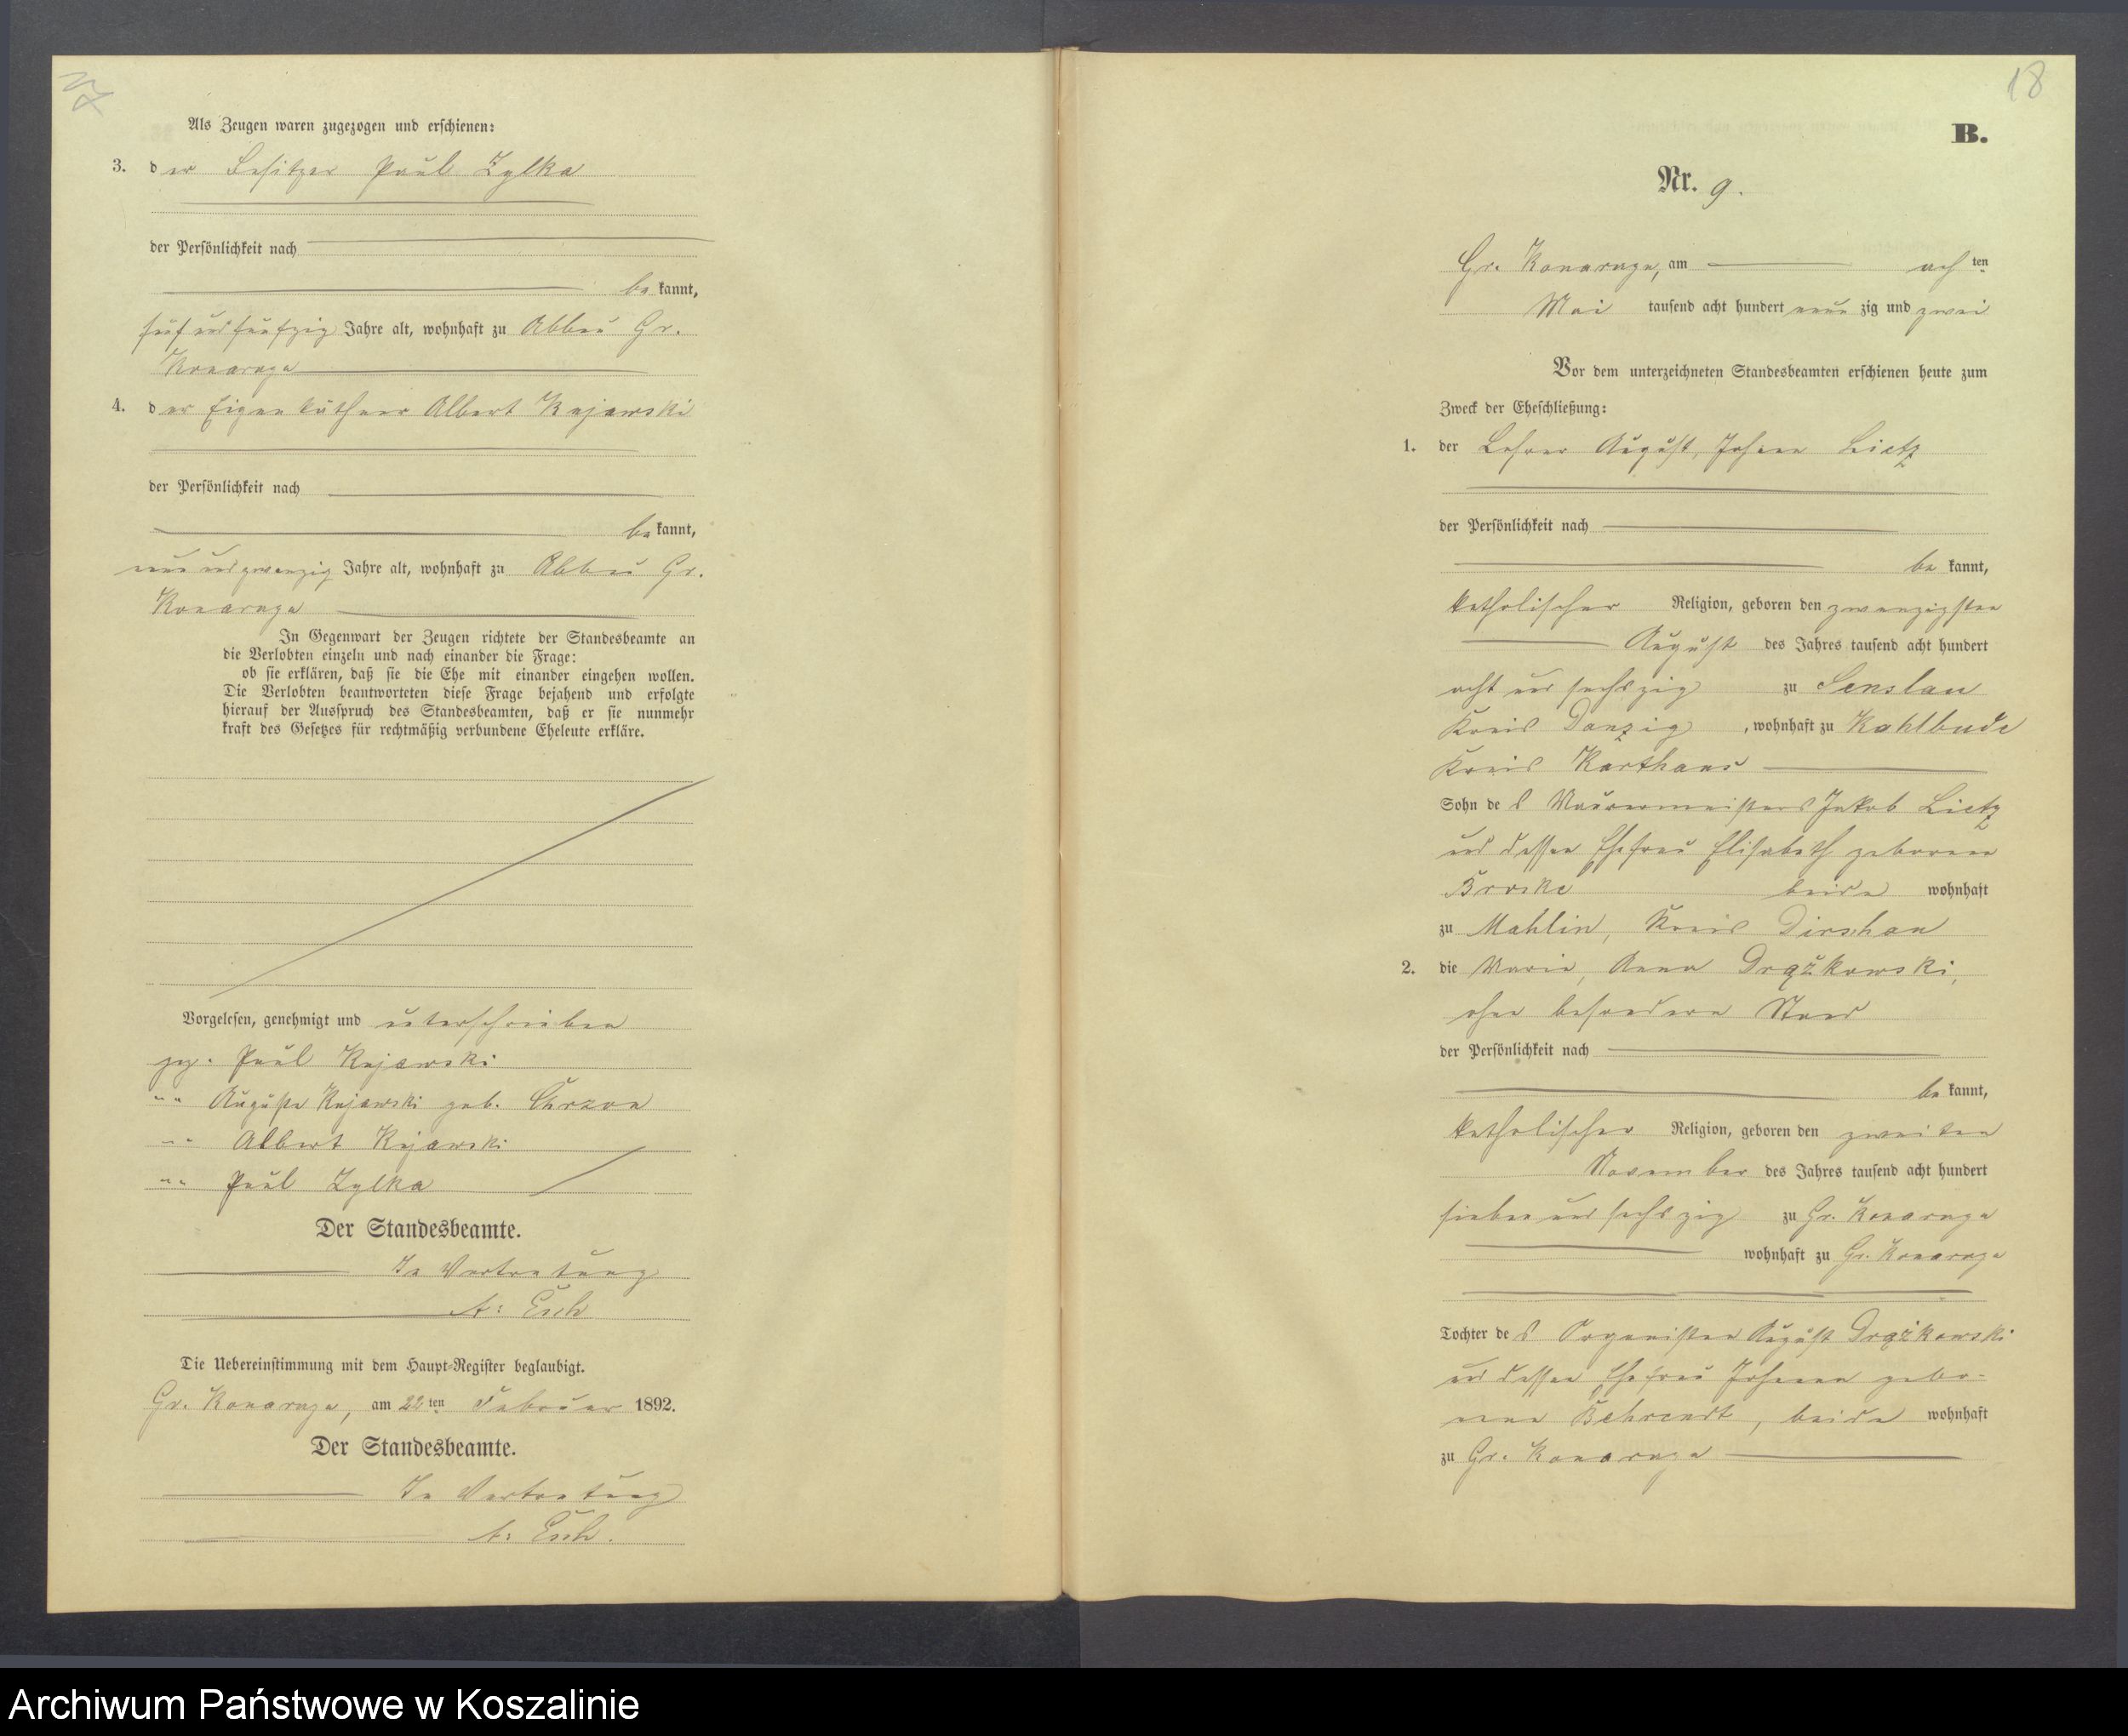 Als Zeugen waren zugezogen und erschienen:
3. der Besitzer Paul Zylka
der Persönlichkeit nach
bekannt,
fünf und fünfzig Jahre alt, wohnhaft zu Abbau Gr.
Konarzyn
4. der Eigenkäthner Albert Kujawski
der Persönlichkeit nach
bekannt,
neun und zwanzig Jahre alt, wohnhaft zu Abbau Gr.
Konarzyn
In Gegenwart der Zeugen richtete der Standesbeamte an
die Verlobten einzeln und nach einander die Frage:
ob sie erklären, daß sie die Ehe mit einander eingehen wollen.
Die Verlobten beantworteten diese Frage bejahend und erfolgte
hierauf der Ausspruch des Standesbeamten, daß er sie nunmehr
kraft des Gesetzes für rechtmäßig verbundene Eheleute erkläre.
Vorgelesen, genehmigt und unterschrieben
gez. Paul Kujawski
" " Auguste Kujawski geb.
" " Albert Kujawski
" " Paul Zylka
Der Standesbeamte.
In Vertretung
A: Esch
Die Uebereinstimmung mit dem Haupt-Register beglaubigt.
Gr. Konarzyn, am 22ten Februar 1892.
Der Standesbeamte.
In Vertretung
A: Esch.
18
B.
Nr. 9.
Gr. Konarzyn, am achten
Mai tausend acht hundert neunzig und zwei
Vor dem unterzeichneten Standesbeamten erschienen heute zum
Zweck der Eheschließung:
1. der Lehrer August, Johann Lietz
der Persönlichkeit nach
bekannt,
katholischer Religion, geboren den zwanzigsten
August des Jahres tausend acht hundert
acht und sechszig zu Senslau
Kreis Danzig, wohnhaft zu Kahlbude
Kreis Karthaus
Sohn des Maurermeisters Jakob Lietz
und dessen Ehefrau Elisabeth geborene
Broske beide wohnhaft
zu Mahlin, Kreis Dirshau
2. die Maria, Anna Drążkowski,
ohne besonderen Stand
der Persönlichkeit nach
bekannt,
katholischer Religion, geboren den zweiten
November des Jahres tausend acht hundert
sieben und sechszig zu Gr. Konarzyn
wohnhaft zu Gr. Konarzyn
Tochter des Organisten August Drążkowski
und dessen Ehefrau Johanna gebo-
rene Behrendt, beide wohnhaft
zu Gr. Konarzyn
Archiwum Państwowe w Koszalinie